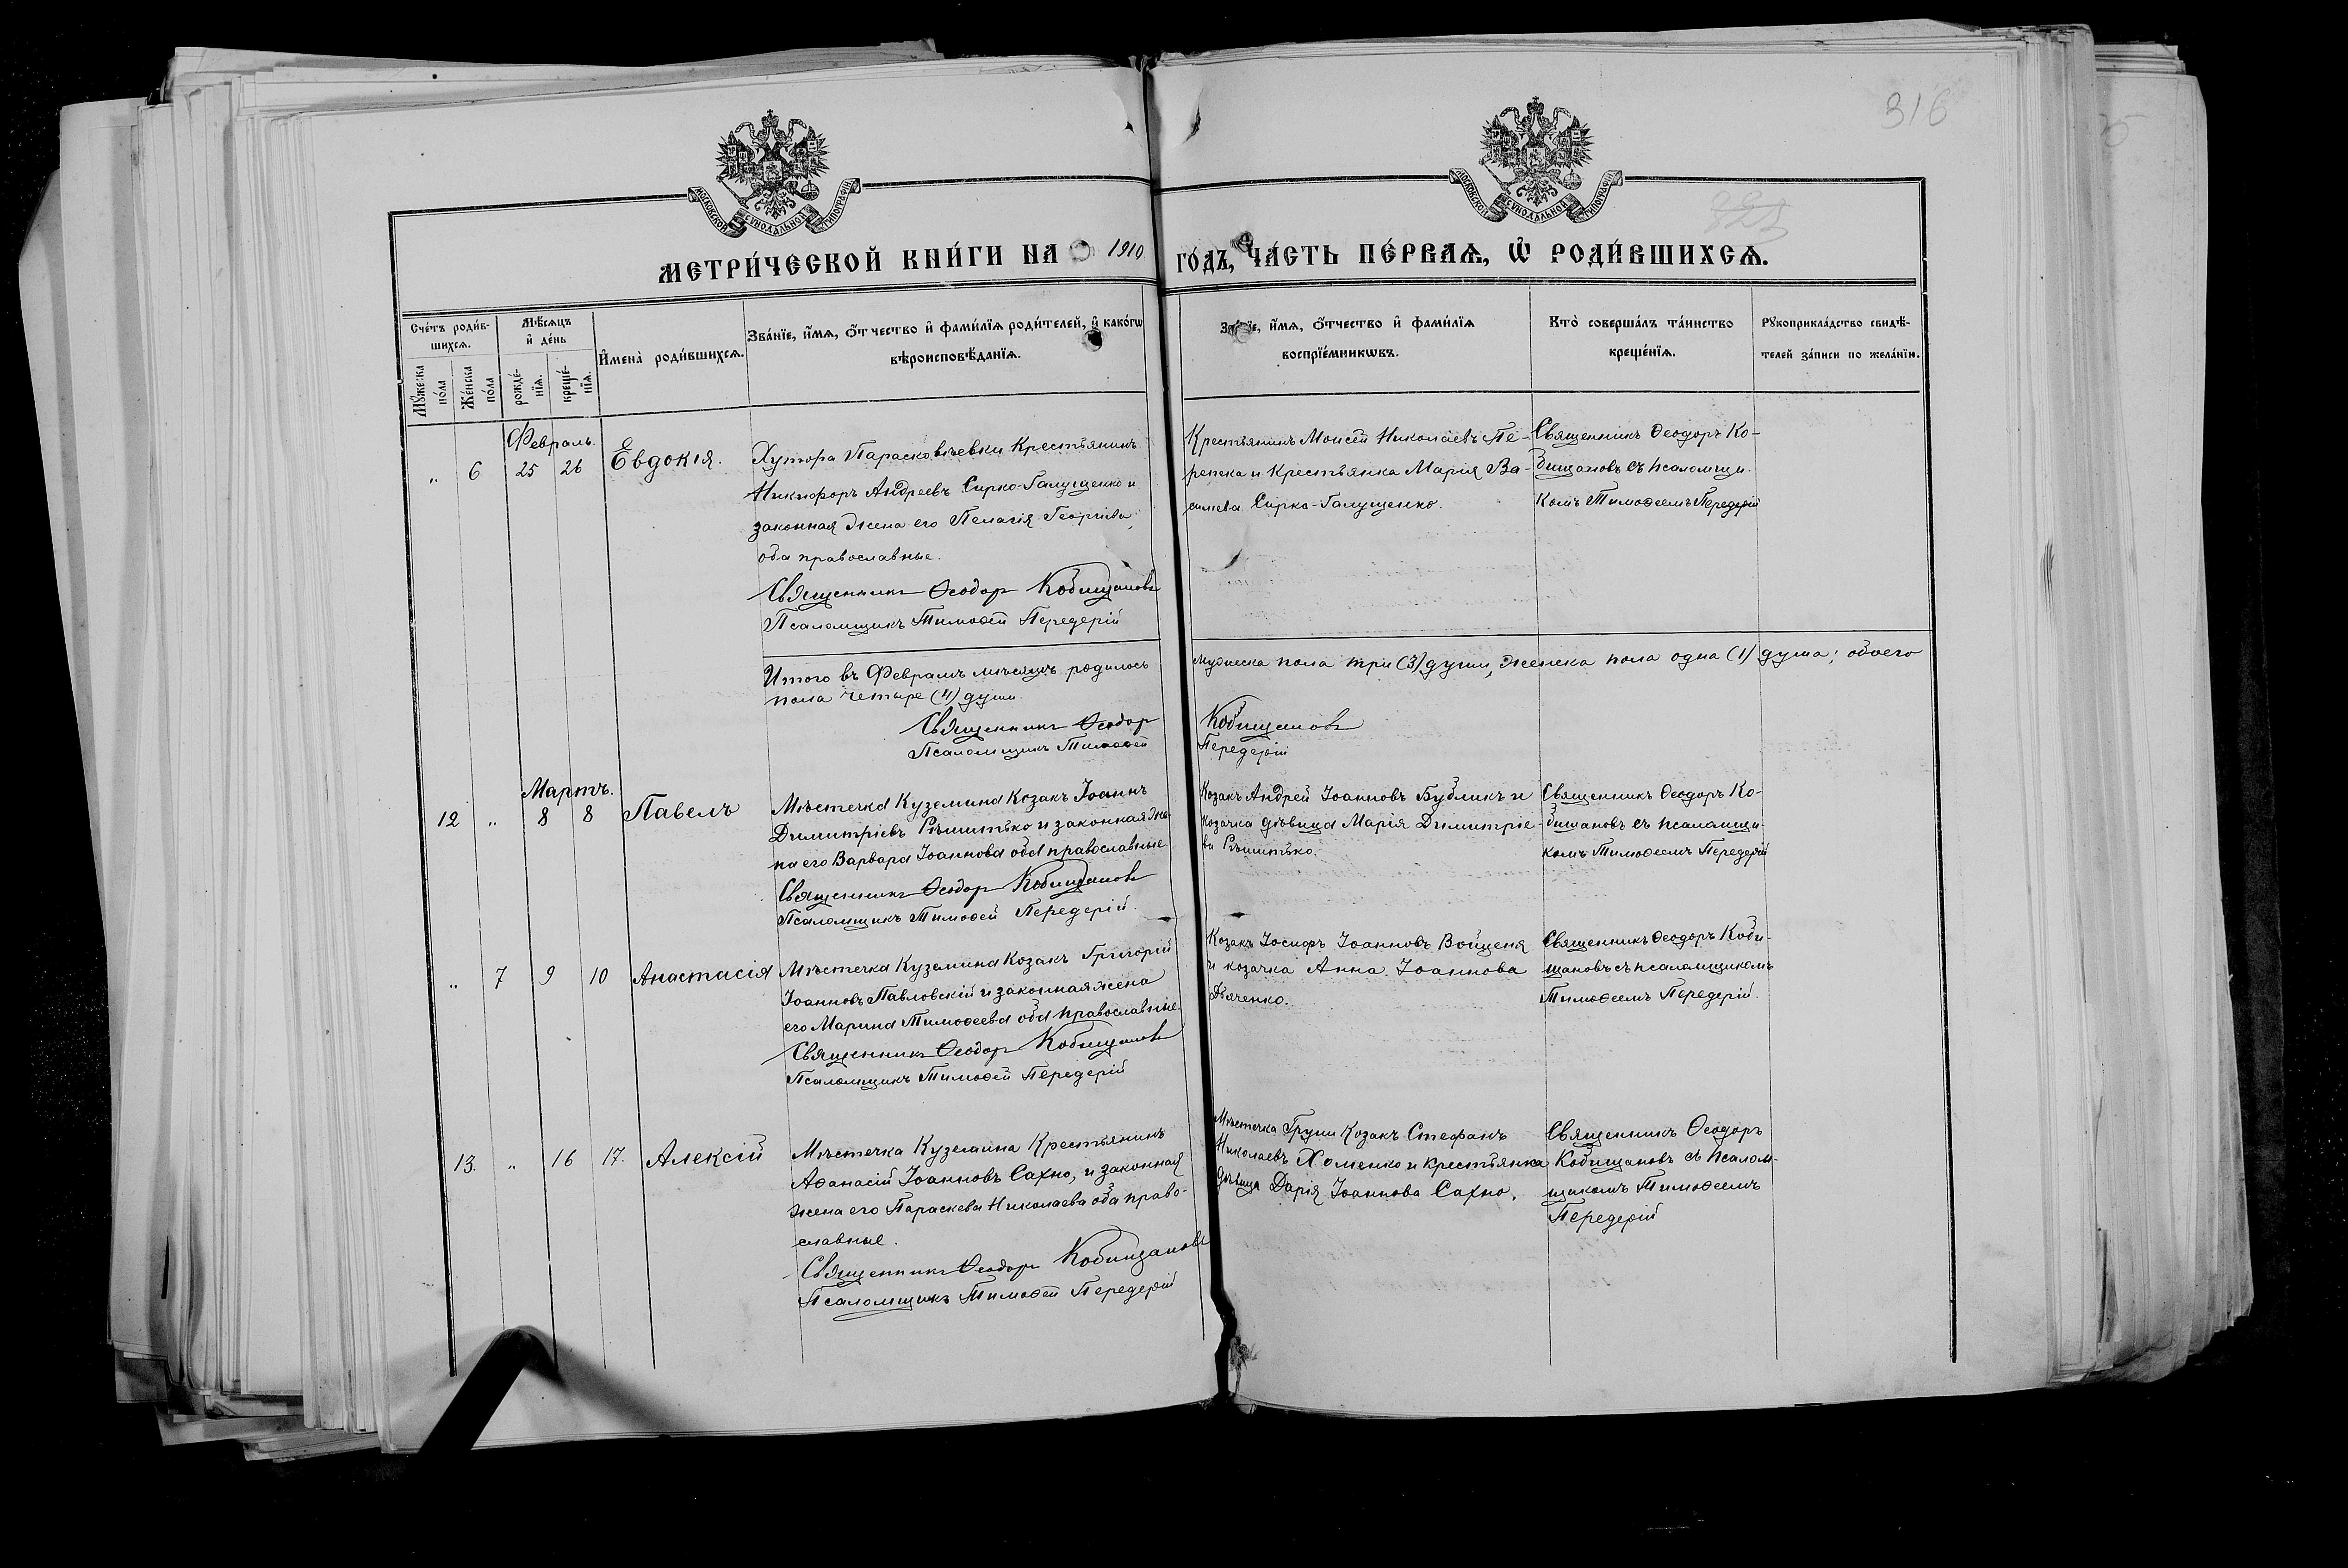 316
МОСКОВСКОЙ СѴНОДАЛЬНОЙ ТИПОГРАФІИ
МОСКОВСКОЙ СѴНОДАЛЬНОЙ ТИПОГРАФІИ
МЕТРИ́ЧЕСКОЙ КНИ́ГИ НА 1910 ГО́ДЪ, ЧА́СТЬ ПЕ́РВАѦ, Ѽ РОДИ́ВШИХСѦ.
Сче́тъ роди́в-
шихсѧ.
Мꙋ́жеска по́ла
Же́нска по́ла
Мѣ́сѧцъ
и҆ де́нь
рожде́-
нїѧ.
креще́-
нїѧ.
И҆мена̀ роди́вшихсѧ.
Зва́нїе, и҆́мѧ, ѻ҆́тчество и҆ фами́лїѧ роди́телей, и҆ како́гѡ
вѣроисповѣ́данїѧ.
Зва́нїе, и҆́мѧ, ѻ҆́тчество и҆ фами́лїѧ
воспрїе́мникѡвъ.
Кто̀ соверша́лъ та́инство
креще́нїѧ.
Рꙋкоприкла́дство свидѣ́-
телей за́писи по жела́нїю.
Февраль.
" 6 25 26 Евдокія.
Хутора Парасковіевки Крестьянинъ
Никифоръ Андреевъ Сирко-Галущенко и
законная жена его Пелагія Георгіева,
оба православные.
Священникъ Ѳеодоръ Кобищановъ
Псаломщикъ Тимоѳей Передерій
Крестьянинъ Моисей Николаевъ Пе-
репека и Крестьянка Марія Ва-
сильева Сирко-Галущенко.
Священникъ Ѳеодоръ Ко-
бищановъ съ псаломщи-
комъ Тимоѳеемъ Передерій
Итого въ Февралѣ мѣсяцѣ родилось мужеска пола три (3) души, женска пола одна (1) душа; обоего
пола четыре (4) души.
Священникъ Ѳеодоръ Кобищановъ
Псаломщикъ Тимоѳей Передерій
Мартъ.
12 " 8 8 Павелъ
Мѣстечка Куземина Козакъ Іоаннъ
Димитріевъ Рѣшитько и законная же-
на его Варвара Іоаннова оба православные
Священникъ Ѳеодоръ Кобищановъ
Псаломщикъ Тимоѳей Передерій.
Козакъ Андрей Іоанновъ Бубликъ и
козачка дѣвица Марія Димитріе-
ва Рѣшитько.
Священникъ Ѳеодоръ Ко-
бищановъ съ псаломщи-
комъ Тимоѳеемъ Передерій
" 7 9 10 Анастасія
Мѣстечка Куземина Козакъ Григорій
Іоанновъ Павловскій и законная жена
его Марина Тимоѳеева оба православные
Священникъ Ѳеодоръ Кобищановъ
Псаломщикъ Тимоѳей Передерій
Козакъ Іосифъ Іоанновъ Войценя
и козачка Анна Іоаннова
Дьяченко.
Священникъ Ѳеодоръ Коби-
щановъ съ псаломщикомъ
Тимоѳеемъ Передерій.
13. " 16 17. Алексій
Мѣстечка Куземина Крестьянинъ
Аѳанасій Іоанновъ Сахно, и законная
жена его Параскева Николаева оба право-
славные.
Священникъ Ѳеодоръ Кобищановъ
Псаломщикъ Тимоѳей Передерій
Мѣстечка Груни Козакъ Стефанъ
Николаевъ Хоменко и крестьянка
дѣвица Дарія Іоаннова Сахно.
Священникъ Ѳеодоръ
Кобищановъ съ псалом-
щикомъ Тимоѳеемъ
Передерій